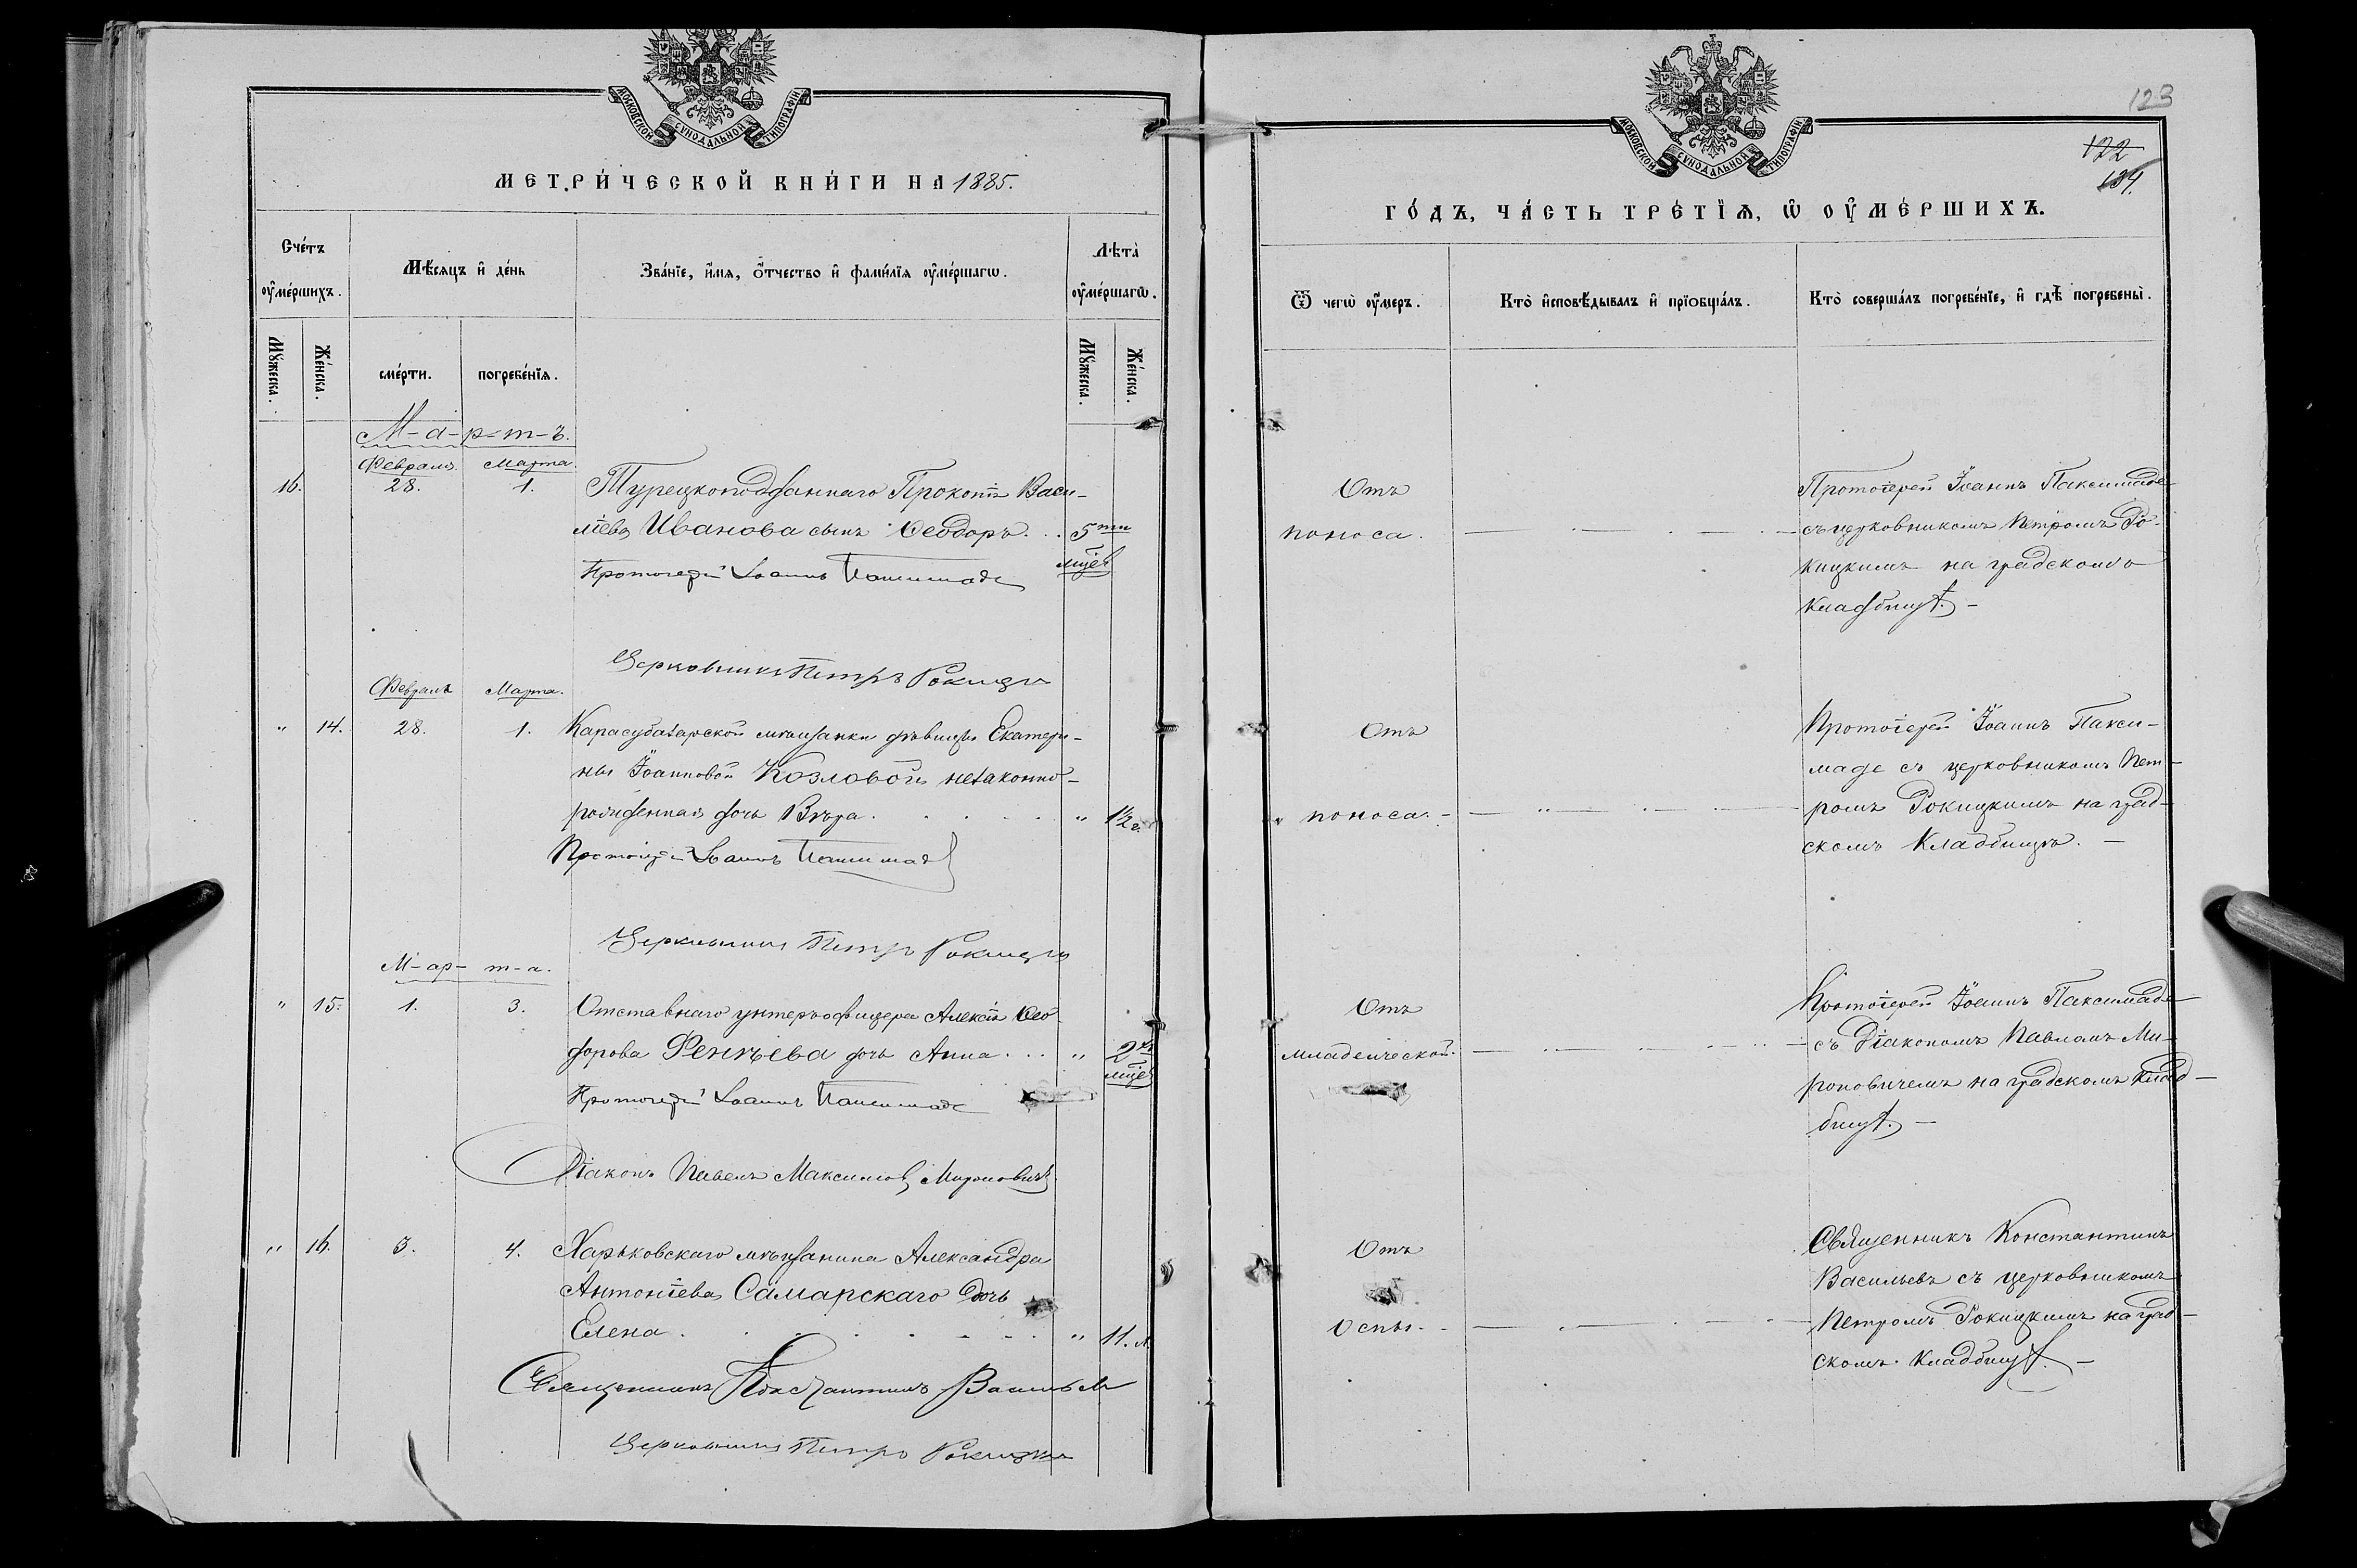 МОСКОВСКОЙ СѴНОДАЛЬНОЙ ТИПОГРАФІИ
МЕТРИ́ЧЕСКОЙ КНИ́ГИ НА 1885.
Сче́тъ оу҆ме́ршихъ.
Мѣ́сяцъ и҆ де́нь
Зва́нїе, и҆́мя, ѻ҆́тчество и҆ фами́лїя оу҆ме́ршагѡ.
Лѣ́та оу҆ме́ршагѡ.
Мꙋ́жеска.
Же́нска.
сме́рти.
погребе́нїя.
Мꙋ́жеска.
Же́нска.
М-а-р-т-ъ.
Февраля. Марта.
16. 28. 1. Турецкоподданнаго Прокопія Васи-
ліева Иванова сынъ Ѳеодоръ . . 5ти
мцев
Протоіерей Іоаннъ Паксимаде
Церковникъ Петръ Рокицкій
Февраля Марта.
" 14. 28. 1. Карасубазарской мѣщанки дѣвицы Екатери-
ны Іоанновой Козловой незаконно-
рожденная дочь Вѣра . . . . . " 1½ г.
Протоіерей Іоаннъ Паксимаде
Церковникъ Петръ Рокицкій
М-ар-т-а.
" 15. 1. 3. Отставнаго унтеръ-офицера Алексія Ѳео-
дорова дочь Анна . . . " 2хъ
мцев
Протоіерей Іоаннъ Паксимаде
Діаконъ Павелъ Максимовъ Мироновичъ
" 16. 3. 4. Харьковскаго мѣщанина Александра
Антоніева Самарскаго дочь
Елена . . . . . . . " 11. л.
Священникъ Константинъ Васильевъ
Церковникъ Петръ Рокицкій
МОСКОВСКОЙ СѴНОДАЛЬНОЙ ТИПОГРАФІИ
123
122
134.
ГО́ДЪ, ЧА́СТЬ ТРЕ́ТЇѦ, Ѡ҆ ОУ҆МЕ́РШИХЪ.
Ѿ чегѡ̀ оу҆́меръ.
Кто̀ и҆сповѣ́дывалъ и҆ прїобща́лъ.
Кто̀ соверша́лъ погребе́нїе, и҆ гдѣ̀ погребены̀.
Отъ
поноса.
Протоіерей Іоаннъ Паксимаде
съ церковникомъ Петромъ Ро-
кицкимъ на градскомъ
кладбищѣ. -
Отъ
поноса. -
Протоіерей Іоаннъ Пакси-
маде съ церковникомъ Пет-
ромъ Рокицкимъ на град-
скомъ Кладбищѣ. -
Отъ
младенческой.
Протоіерей Іоаннъ Паксимаде
съ Діакономъ Павломъ Ми-
роновичемъ на градскомъ клад-
бищѣ. -
Отъ
Оспы. -
Священникъ Константинъ
Васильевъ съ церковникомъ
Петромъ Рокицкимъ на град-
скомъ кладбищѣ. -